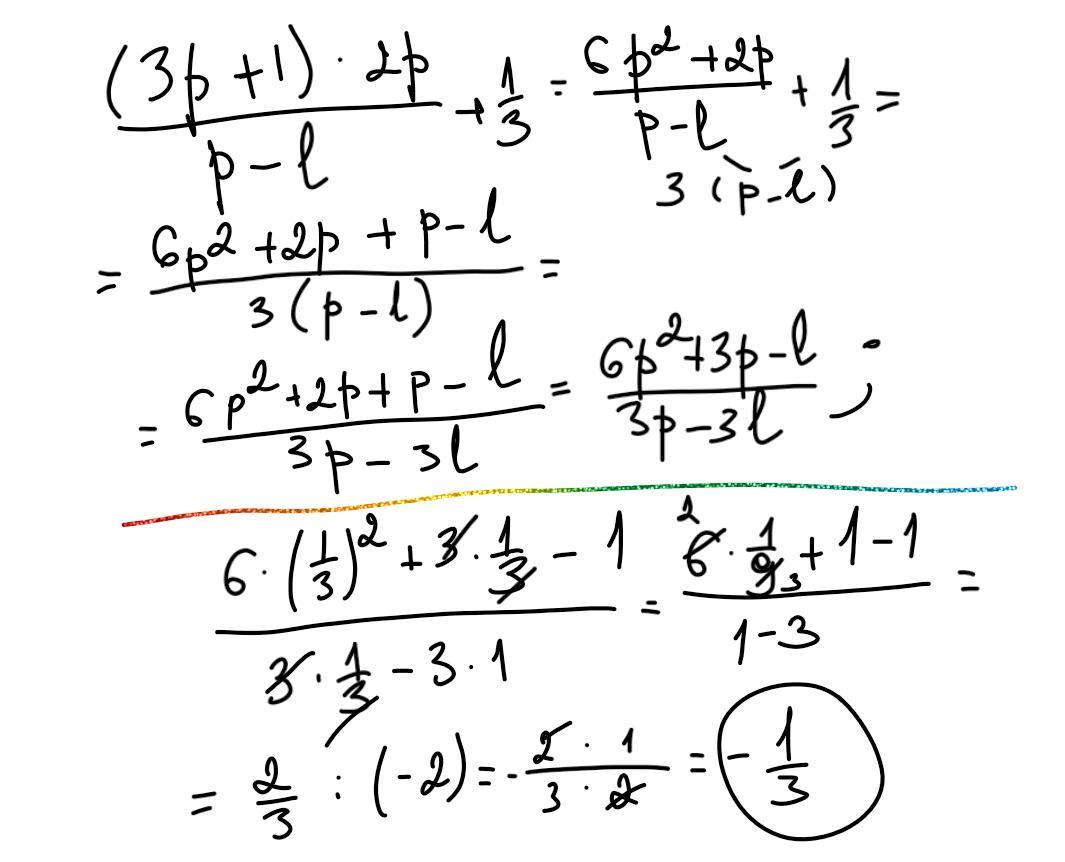 ((3p + 1) · 2p)/(p - l) + 1/3 = (6p² + 2p)/(p - l) + 1/3 =
3 (p - l)
= (6p² + 2p + p - l)/(3 (p - l)) =
= (6p² + 2p + p - l)/(3p - 3l) = (6p² + 3p - l)/(3p - 3l) ;
(6 · (1/3)² + 3 · 1/3 - 1)/(3 · 1/3 - 3 · 1) = (6 2 · 1/9 3 + 1 - 1)/(1 - 3) =
= 2/3 : (-2) = - (2 · 1)/(3 · 2) = - 1/3